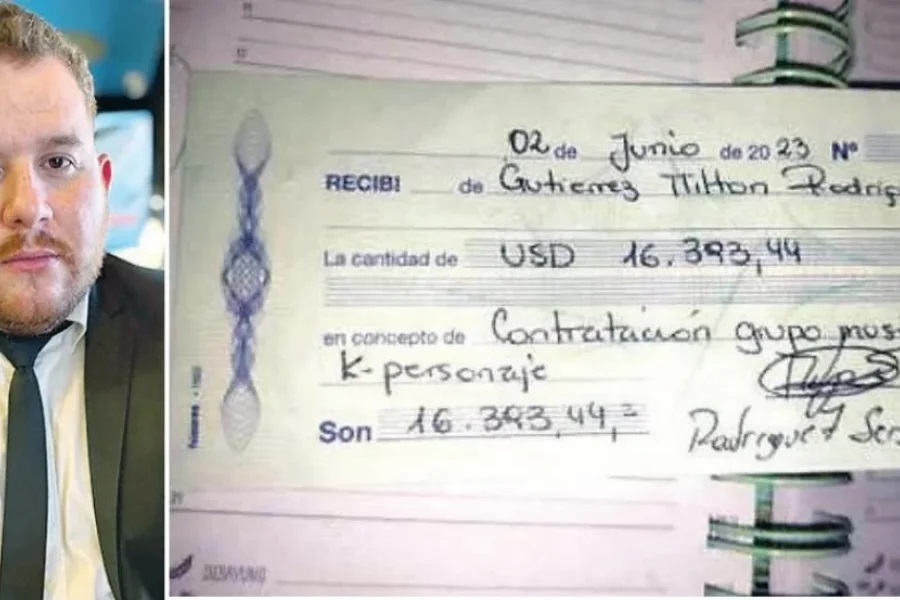 11
12
02 de Junio de 2023 Nº
RECIBI de Gutierrez Milton Rodrig
La cantidad de USD 16.393,44
en concepto de Contratación grupo mus
K-personaje
Son 16.393,44,=
Rodriguez Ser
21
DESAYUNO